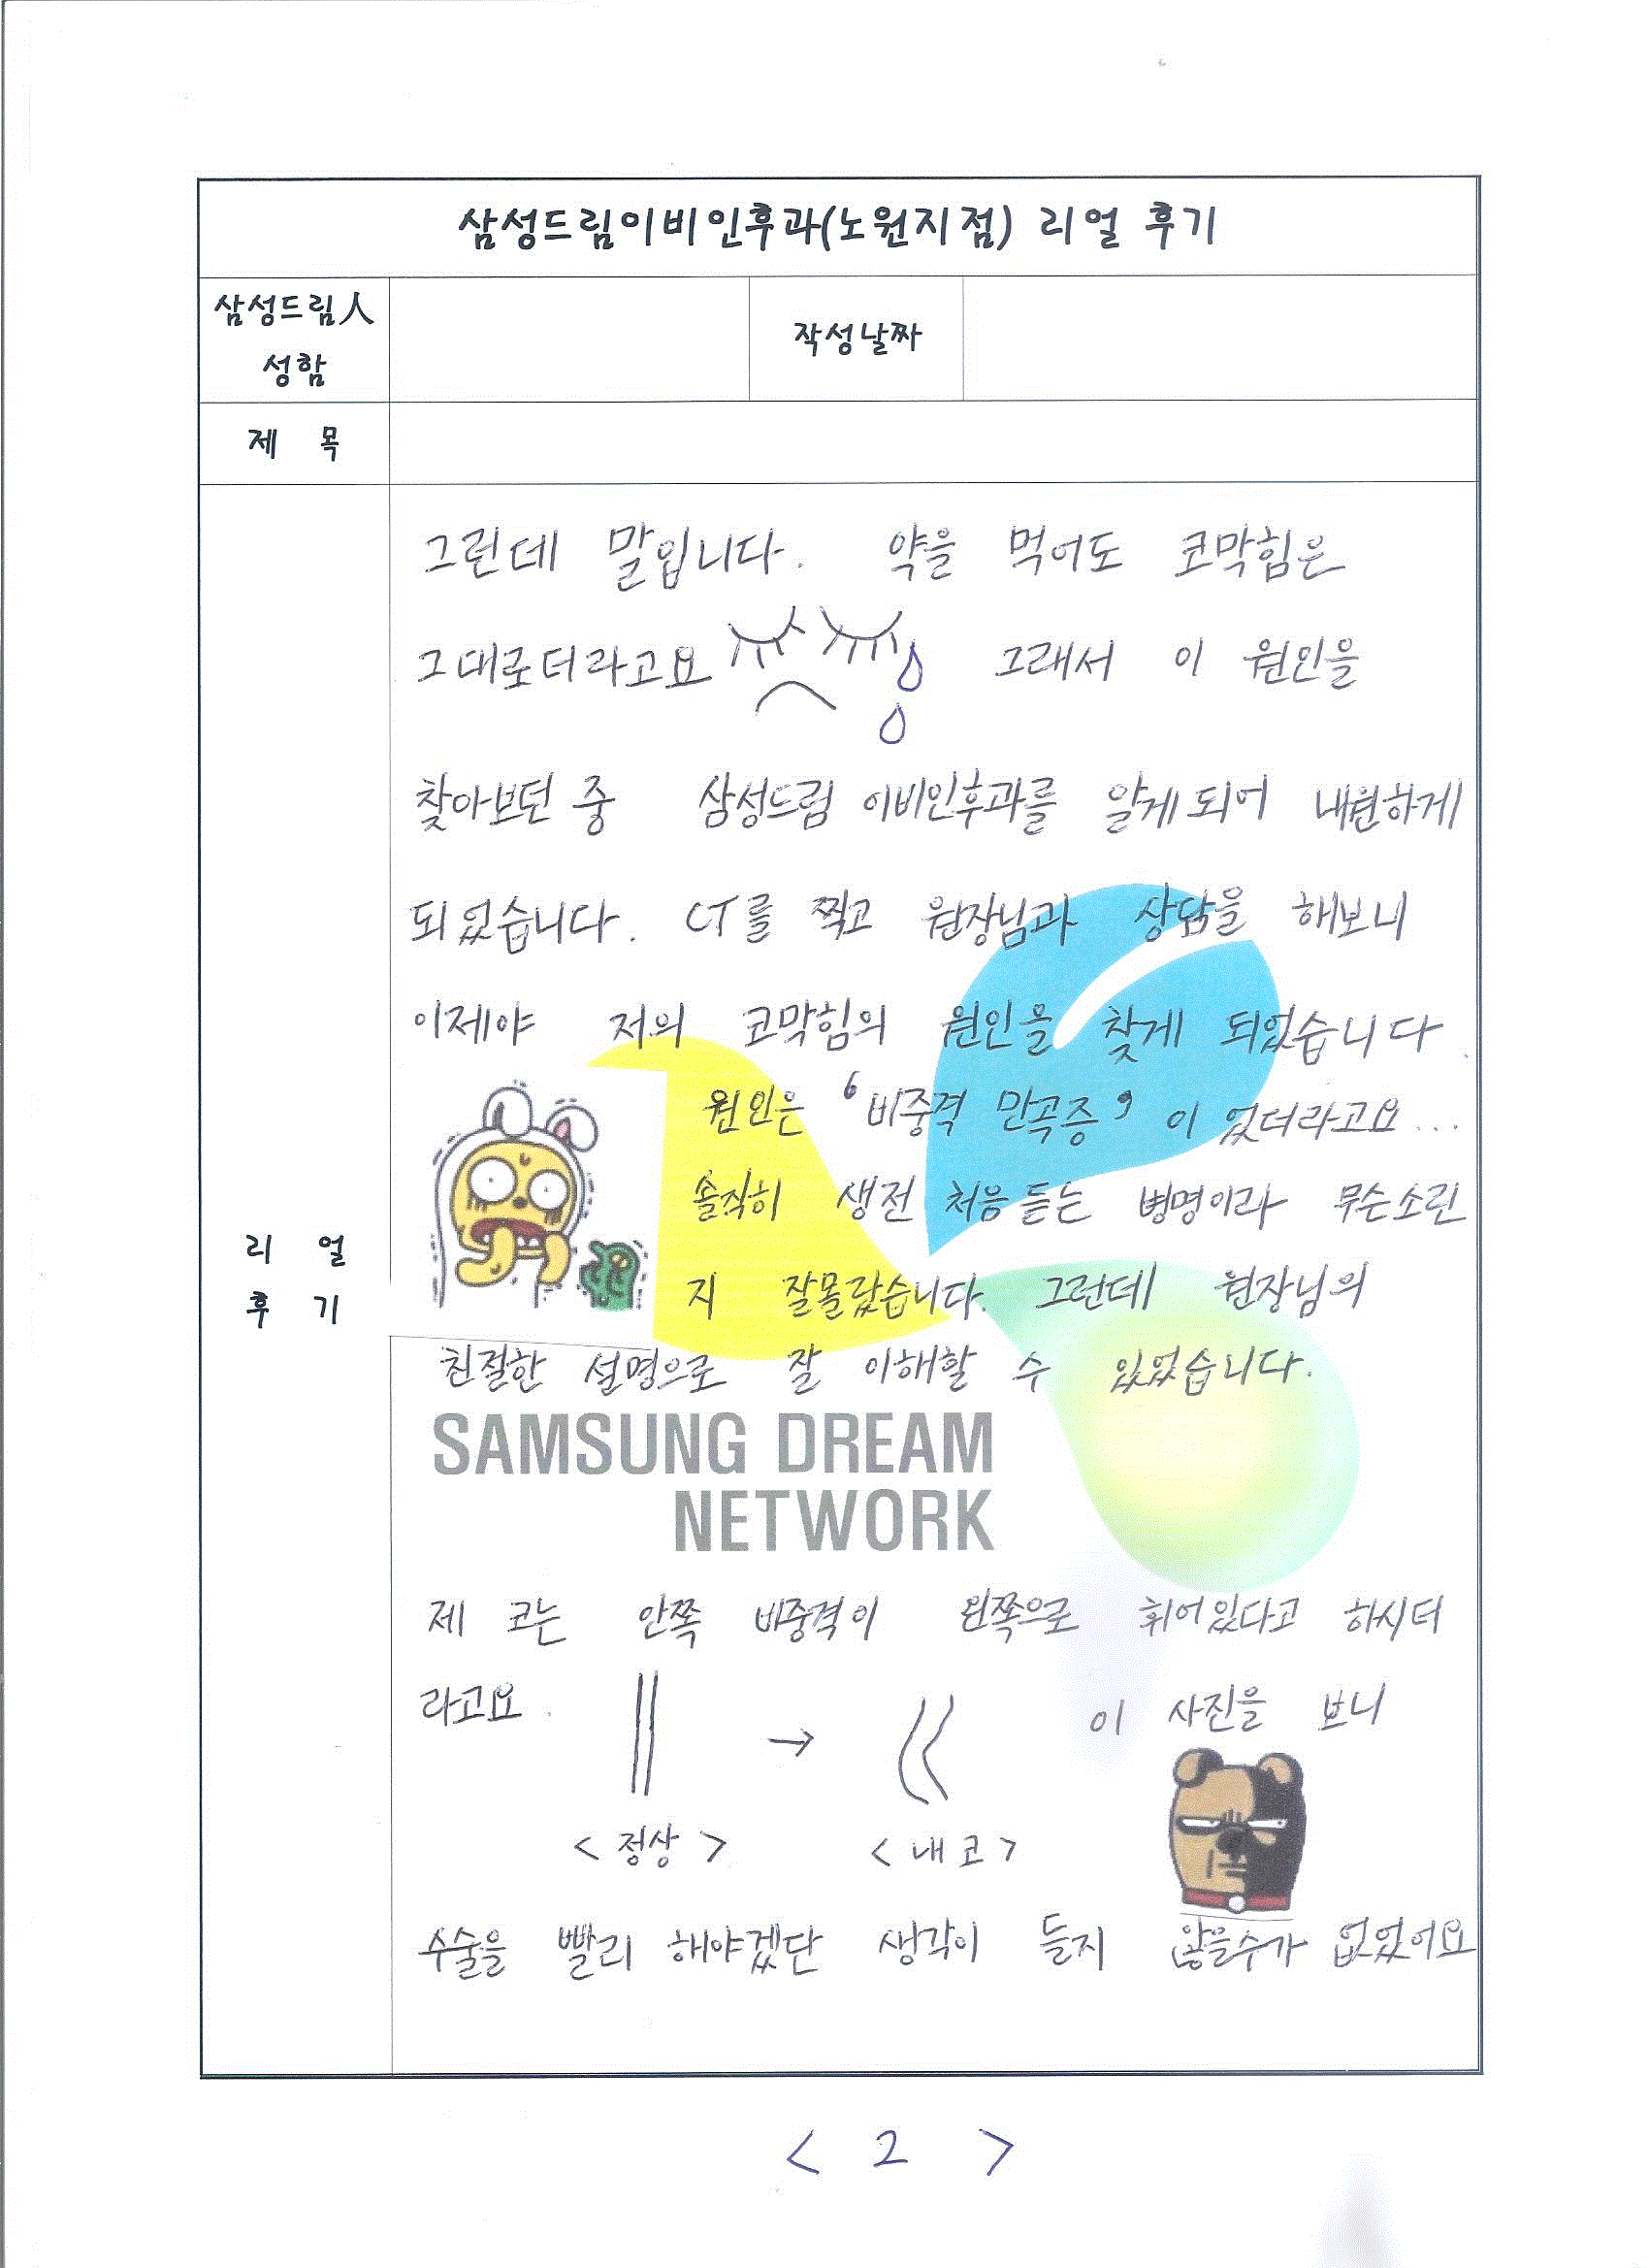 삼성드림이비인후과(노원지점) 리얼 후기
삼성드림人
성함
작성날짜
제 목
그런데 말입니다. 약을 먹어도 코막힘은
그대로더라고요 그래서 이 원인을
찾아보던 중 삼성드림 이비인후과를 알게되어 내원하게
되었습니다. CT를 찍고 원장님과 상담을 해보니
이제야 저의 코막힘의 원인을 찾게 되었습니다.
원인은 '비중격 만곡증' 이 었더라고요...
솔직히 생전 처음듣는 병명이라 무슨소린
지 잘몰랐습니다. 그런데 원장님의
친절한 설명으로 잘 이해할 수 있었습니다.
리 얼
후 기
SAMSUNG DREAM
NETWORK
제 코는 안쪽 비중격이 왼쪽으로 휘어있다고 하시더
라고요. → 이 사진을 보니
< 정상 > < 내 코 >
수술을 빨리 해야겠단 생각이 들지 않을수가 없었어요
< 2 >